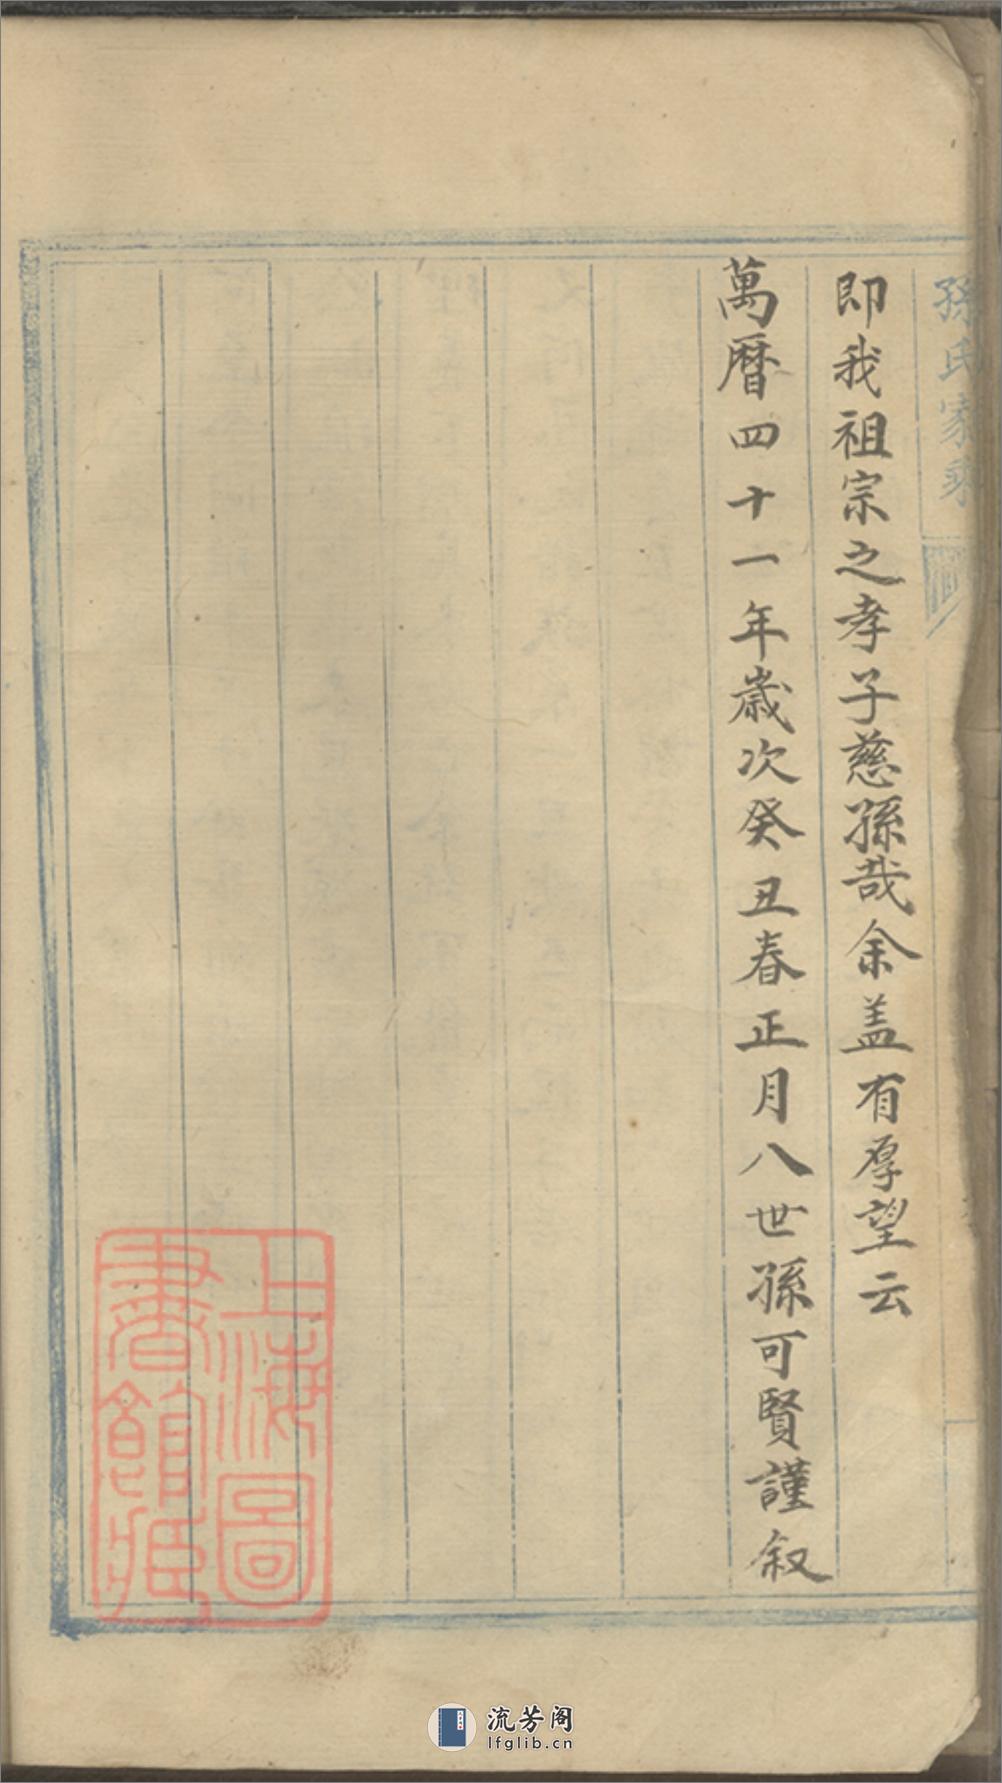 孫氏家乘
即我祖宗之孝子慈孫哉余盖有厚望云
萬曆四十一年歲次癸丑春正月八世孫可賢謹叙
上海圖
書館藏
流芳阁
lfglib.cn